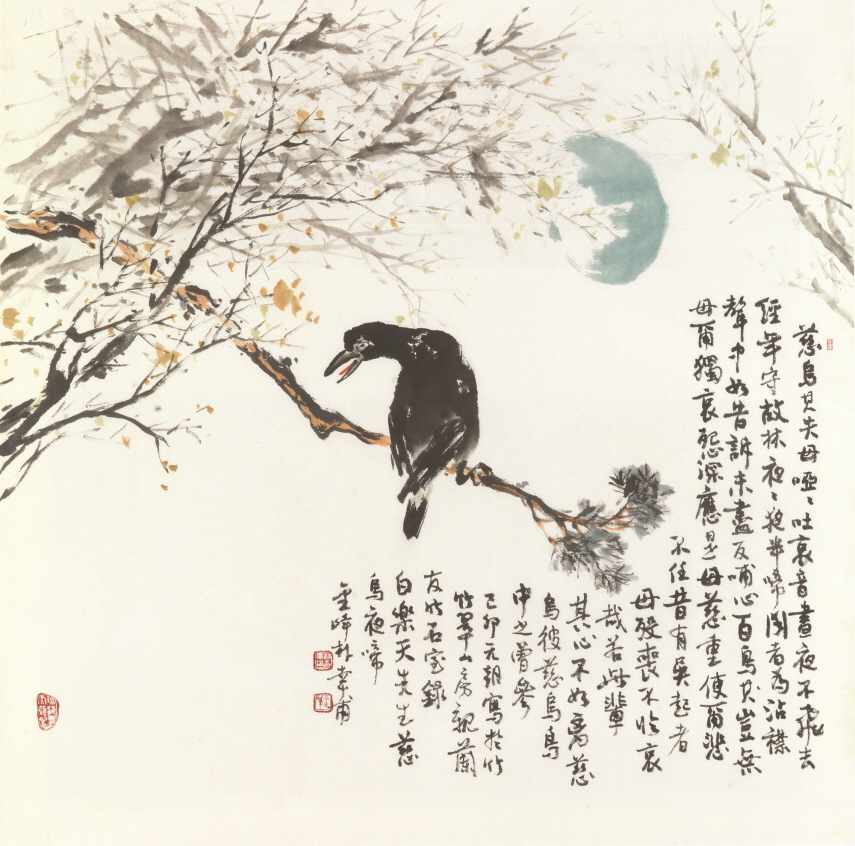 慈烏其失母啞〻吐哀音晝夜不飛去
經年守故林夜〻夜半啼聞者為沾襟
聲中如告訴未盡反哺心百鳥其豈無
母爾獨哀怨深應是母慈重使爾悲
不任昔有吳起者
母歿喪不臨哀
哉若此輩
其心不如禽慈
烏彼慈烏鳥
中之曾參
己卯元朝寫於竹
山房觀蘭
友竹石室錄
白樂天先生慈
烏夜啼
金峰朴幸甫